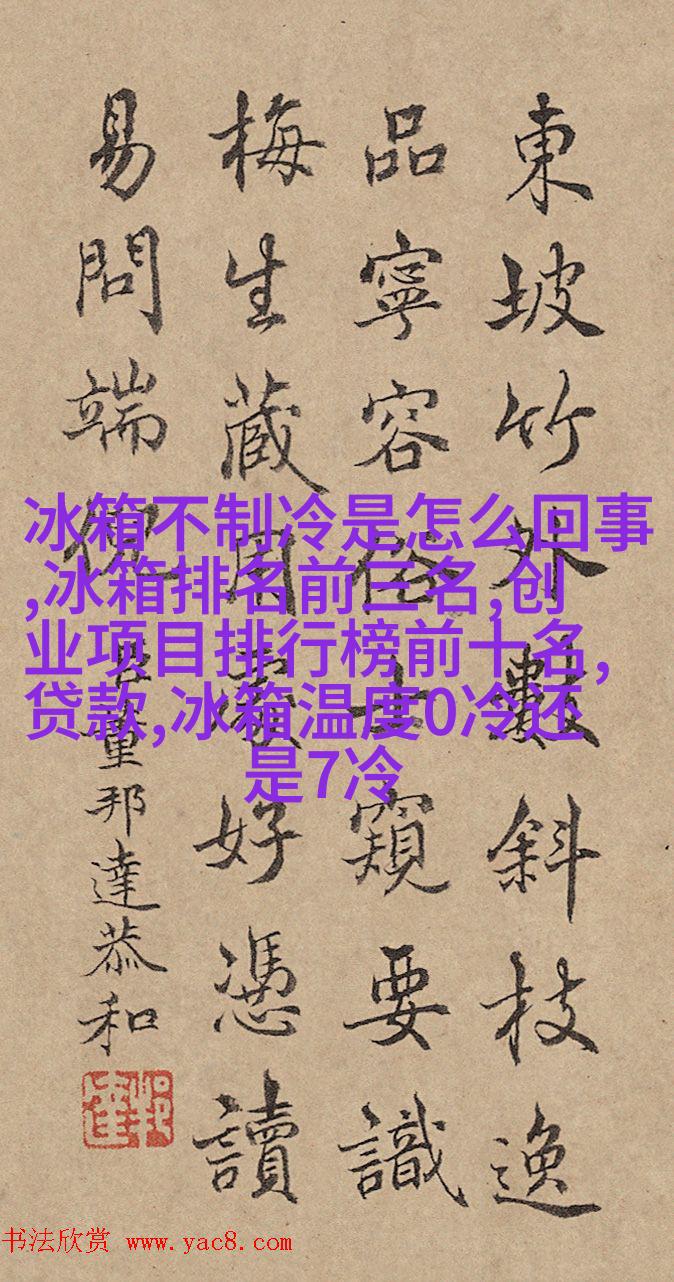 東坡竹外數斜枝逸
品寧容俗士窺要識
梅生藏用處好憑讀
易問端倪
臣董邦達恭和
冰箱不制冷是怎么回事
,冰箱排名前三名,创
业项目排行榜前十名,
贷款,冰箱温度0冷还
是7冷
书法欣赏 www.yac8.com